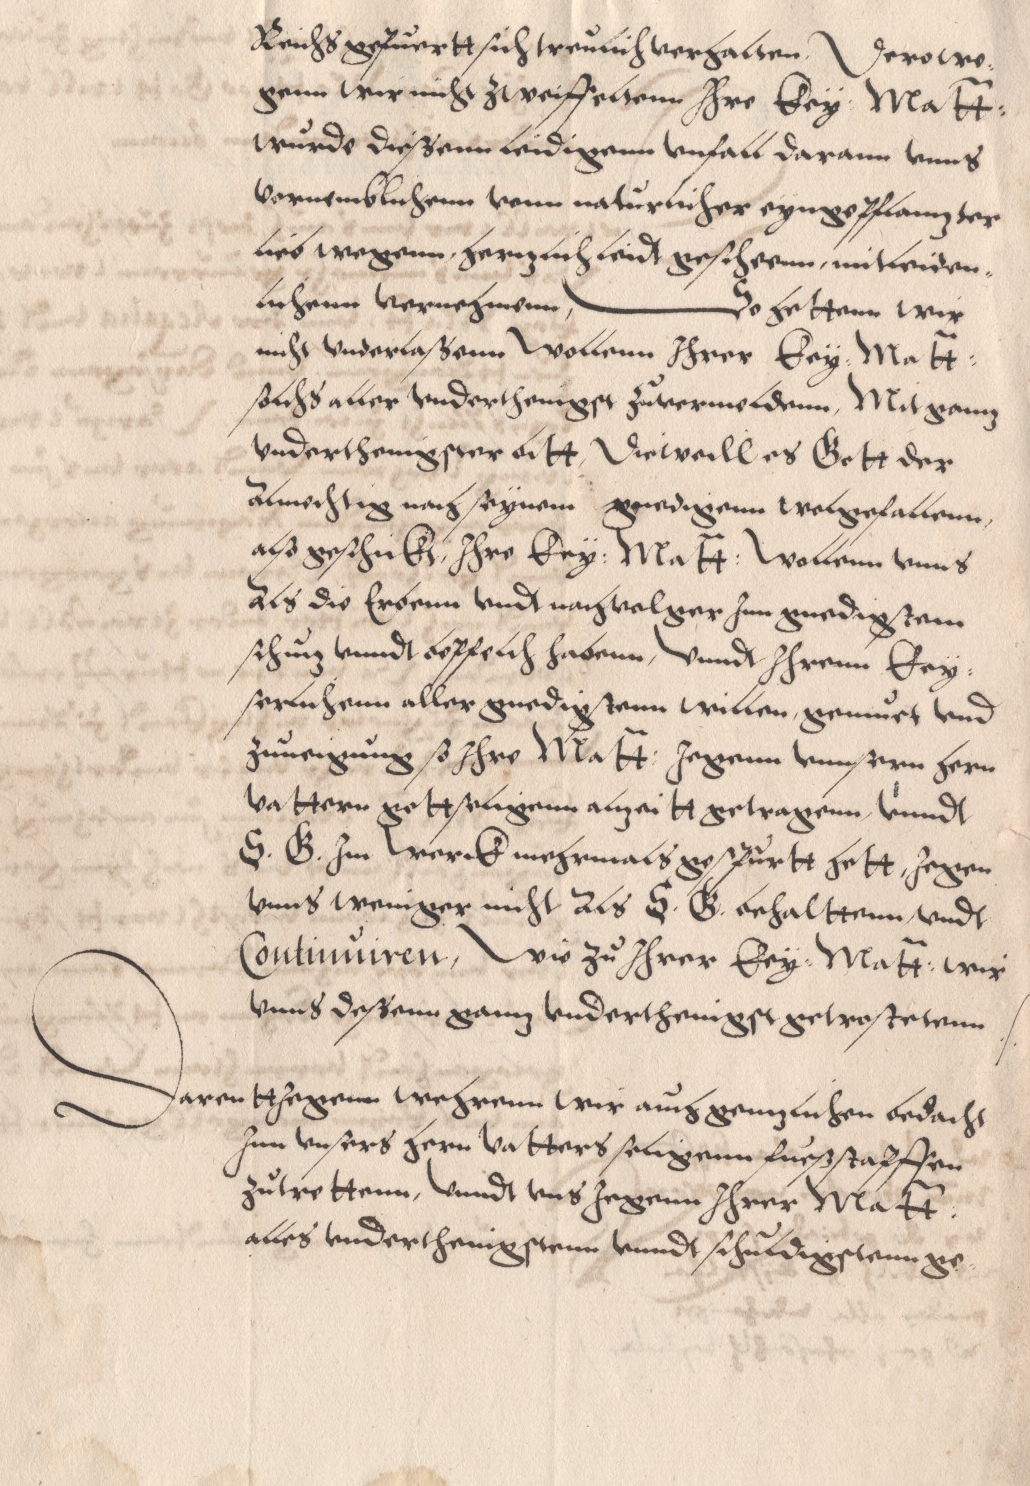 Reichs gespuertt sich treulich verhalten, Derowe-
genn wir nicht Zweiffeltenn Ihre Key: Matt:
wurde diessenn leidigenn vnfall darann vnns
vornemblichenn vonn naturlicher eyngepflanzter
lieb wegenn, herzlich leidt gescheenn, mitleiden-
lichenn vernehmenn, So hettenn wir
nicht vnderlassenn wollenn Ihrer Key: Matt:
solchs aller vnderthenigst zuvermeldenn, Mit ganz
vnderthenigster bitt, Dieweill es Gott der
Almechtig nach seynem gnedigenn wolgefallenn,
also geschickt, Ihre Key: Matt: wollenn vnns
Als die Erbenn vndt nachvolger Inn gnedigstem
schuz vnndt beffelch habenn, Vnndt Ihrenn Key-
serlichenn aller gnedigstenn willen, gemuet vnd
zuneigung so Ihre Matt: Jegenn vnnsern hern
vattern gottseligenn alzeitt getragenn, Vnndt
S. G. Im Werck mehrmals gespurtt hett, Jegen
vnns weniger nicht Als S. G. behalttenn, vndt
Continuiren, Wie zu Ihrer Key: Matt: wir
vnns dessenn ganz vnderthenigst getrostetenn
Darenttjegenn wehrenn wir auch genzlichen bedacht
Inn vnsers hern Vatters seligenn fuessstapffen
zutrettenn, Vnndt vns Jegenn Ihrer Matt:
alles vnderthenigstenn vnndt schuldigstenn ge-